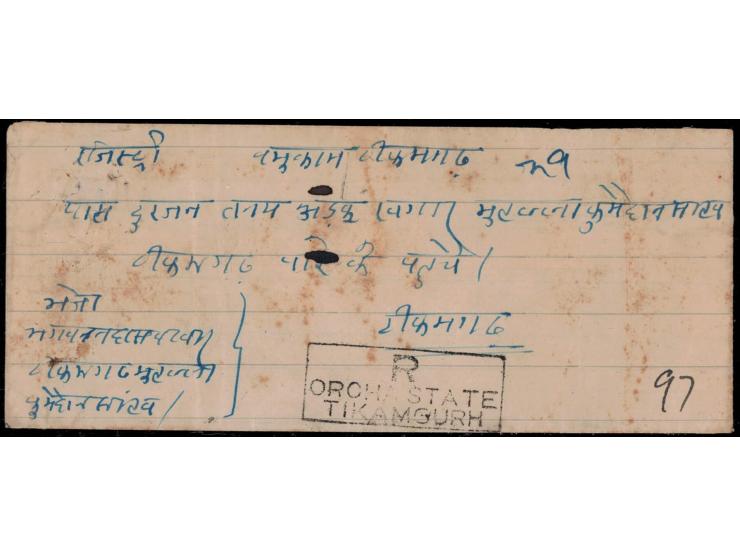 रजिस्ट्री वमुकाम टीकमगढ नं १
पास दुरजन तनय अड़कू मुहल्ला कुमैदान साहब
टीकमगढ के पहुचे।
टीकमगढ
भेजा
टीकमगढ मुहल्ला
कुमैदान साहब।
R
ORCHA STATE
TIKAMGURH
97